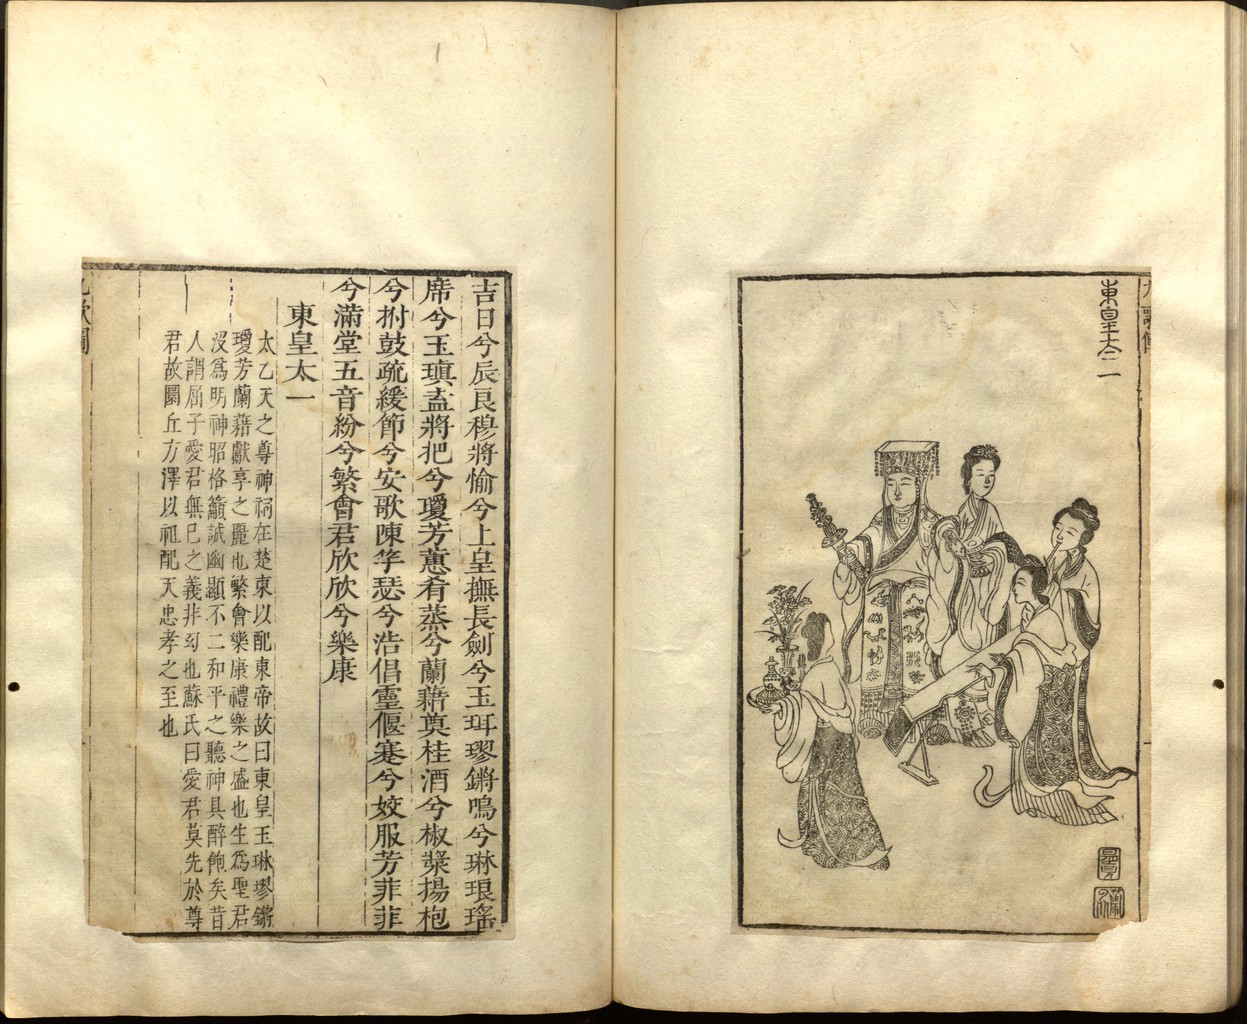 東皇太一
吉日兮辰良穆將愉兮上皇撫長劍兮玉珥璆鏘鳴兮琳琅瑤
席兮玉瑱盍將把兮瓊芳蕙肴蒸兮蘭藉奠桂酒兮椒漿揚枹
兮拊鼓疏緩節兮安歌陳竽瑟兮浩倡靈偃蹇兮姣服芳菲菲
兮滿堂五音紛兮繁會君欣欣兮樂康
東皇太一
太乙天之尊神祠在楚東以配東帝故曰東皇玉琳璆鏘
瓊芳蘭藉獻享之麗也繁會樂康禮樂之盛也生爲聖君
沒爲明神昭格籲誠幽顯不二和平之聽神具醉飽矣昔
人謂屈子愛君無已之義非幻也蘇氏曰愛君莫先於尊
君故圜丘方澤以祖配天忠孝之至也